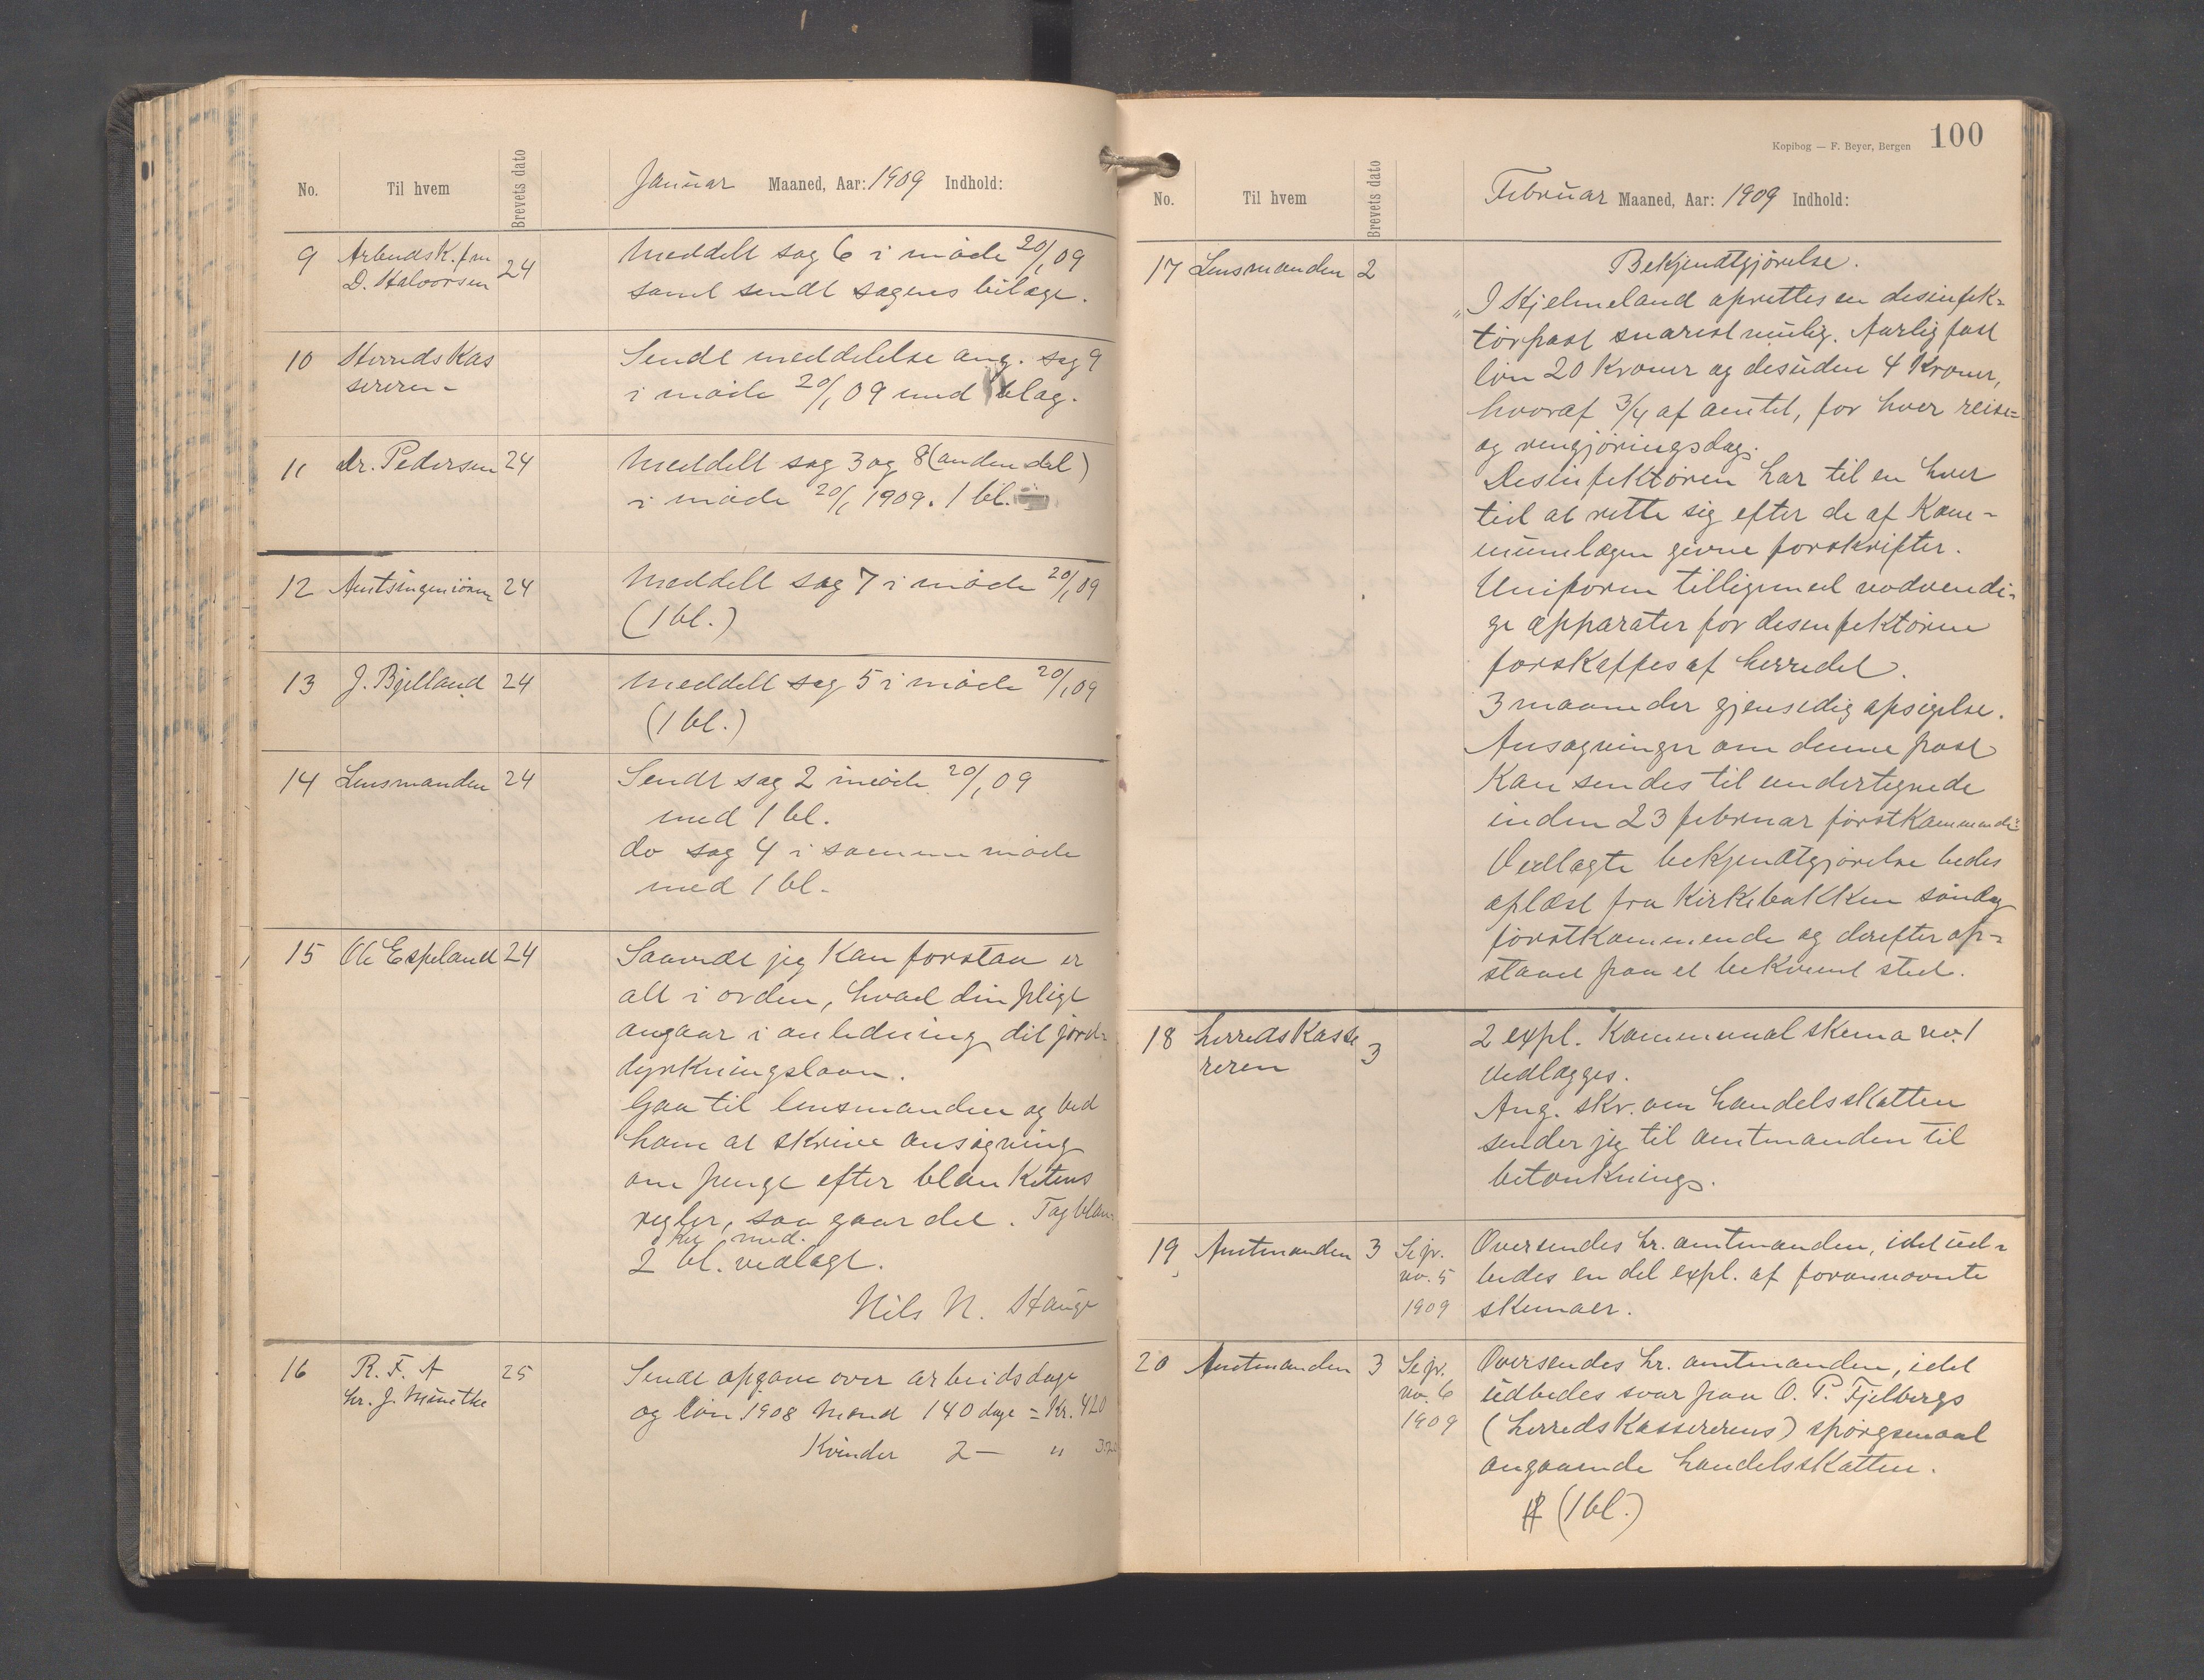 No. Til hvem Brevets dato Januar Maaned, Aar: 1909 Indhold:
9 Arbeidsk. frm 24 Meddelt sag 6 i møde 20/1 09
D. Halvorsen samt sendt sagens bilage.
10 Herredskas Sendt meddelelse ang. sag 9
sereren - i møde 20/1 09 med bilag.
11 dr. Pedersen 24 Meddelt sag 3 og 8 (anden del)
i møde 20/1 1909. 1 bl.
12 Amtsingeniøren 24 Meddelt sag 7 i møde 20/1 09
(1 bl.)
13 J. Bjelland 24 Meddelt sag 5 i møde 20/1 09
(1 bl.)
14 Lensmanden 24 Sendt sag 2 i møde 20/1 09
med 1 bl.
do sag 4 i samme møde
med 1 bl.
15 Ole Espeland 24 Saavidt jeg kan forstaa er
alt i orden, hvad din pligt
angaar i anledning dit jord-
dyrkningslaan.
Gaa til lensmanden og bed
ham at skrive ansøgning
om penge efter blanketens
regler, saa gaar det. Tag blan-
ket med.
2 bl. vedlagt.
Nils N. Hauge
16 R. F. A 25 Sendt opgave over arbeidsdage
hr. J. og løn 1908 Mænd 140 dage = Kr. 420
Kvinder 2 — " 32
Kopibog — F. Beyer, Bergen 100
No. Til hvem Brevets dato Februar Maaned, Aar: 1909 Indhold:
17 Lensmanden 2 Bekjendtgjørelse.
„I Hjelmeland oprettes en desinfek-
tørpost snarest mulig. Aarlig fast
løn 20 Kroner og desuden 4 Kroner,
hvoraf 3/4 af amtet, for hver reise-
og rengjøringsdag.
Desinfektøren har til en hver
tid at rette sig efter de af Kom-
munelægen givne forskrifter.
Uniform tilligemed nødvendi-
ge apparater for desenfektøren
forskaffes af herredet.
3 maaneder gjensidig opsigelse.
Ansøgninger om denne post
kan sendes til undertegnede
inden 23 februar førstkommende"
Vedlagte bekjendtgjørelse bedes
oplæst fra Kirkebakken søndag
førstkommende og derefter op-
slaaet paa et bekvemt sted.
18 Herredskasse 3 2 expl. Kommunal skema no. 1
reren vedlægges.
Ang. skr. om handelsskatten
sender jeg til amtmanden til
betænkning.
19 Amtmanden 3 Se jr. Oversendes hr. amtmanden, idet ud-
no. 5 bedes en del expl. af forannævnte
1909 skemaer.
20 Amtmanden 3 Se jr. Oversendes hr. amtmanden, idet
no. 6 udbedes svar paa O. P. Fjelbergs
1909 (herredskassererens) spørgsmaal
angaaende handelsskatten.
(1 bl.)